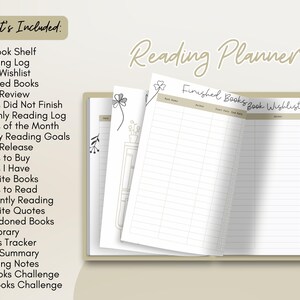 t's Included:
Reading Planner
ok Shelf
ng Log
Wishlist
ed Books
Review
Did Not Finish
ly Reading Log
of the Month
y Reading Goals
Release
to Buy
I Have
ite Books
to Read
ntly Reading
ite Quotes
doned Books
brary
Tracker
Summary
ng Notes
ooks Challenge
ooks Challenge
Finished Books
Book Wishlist